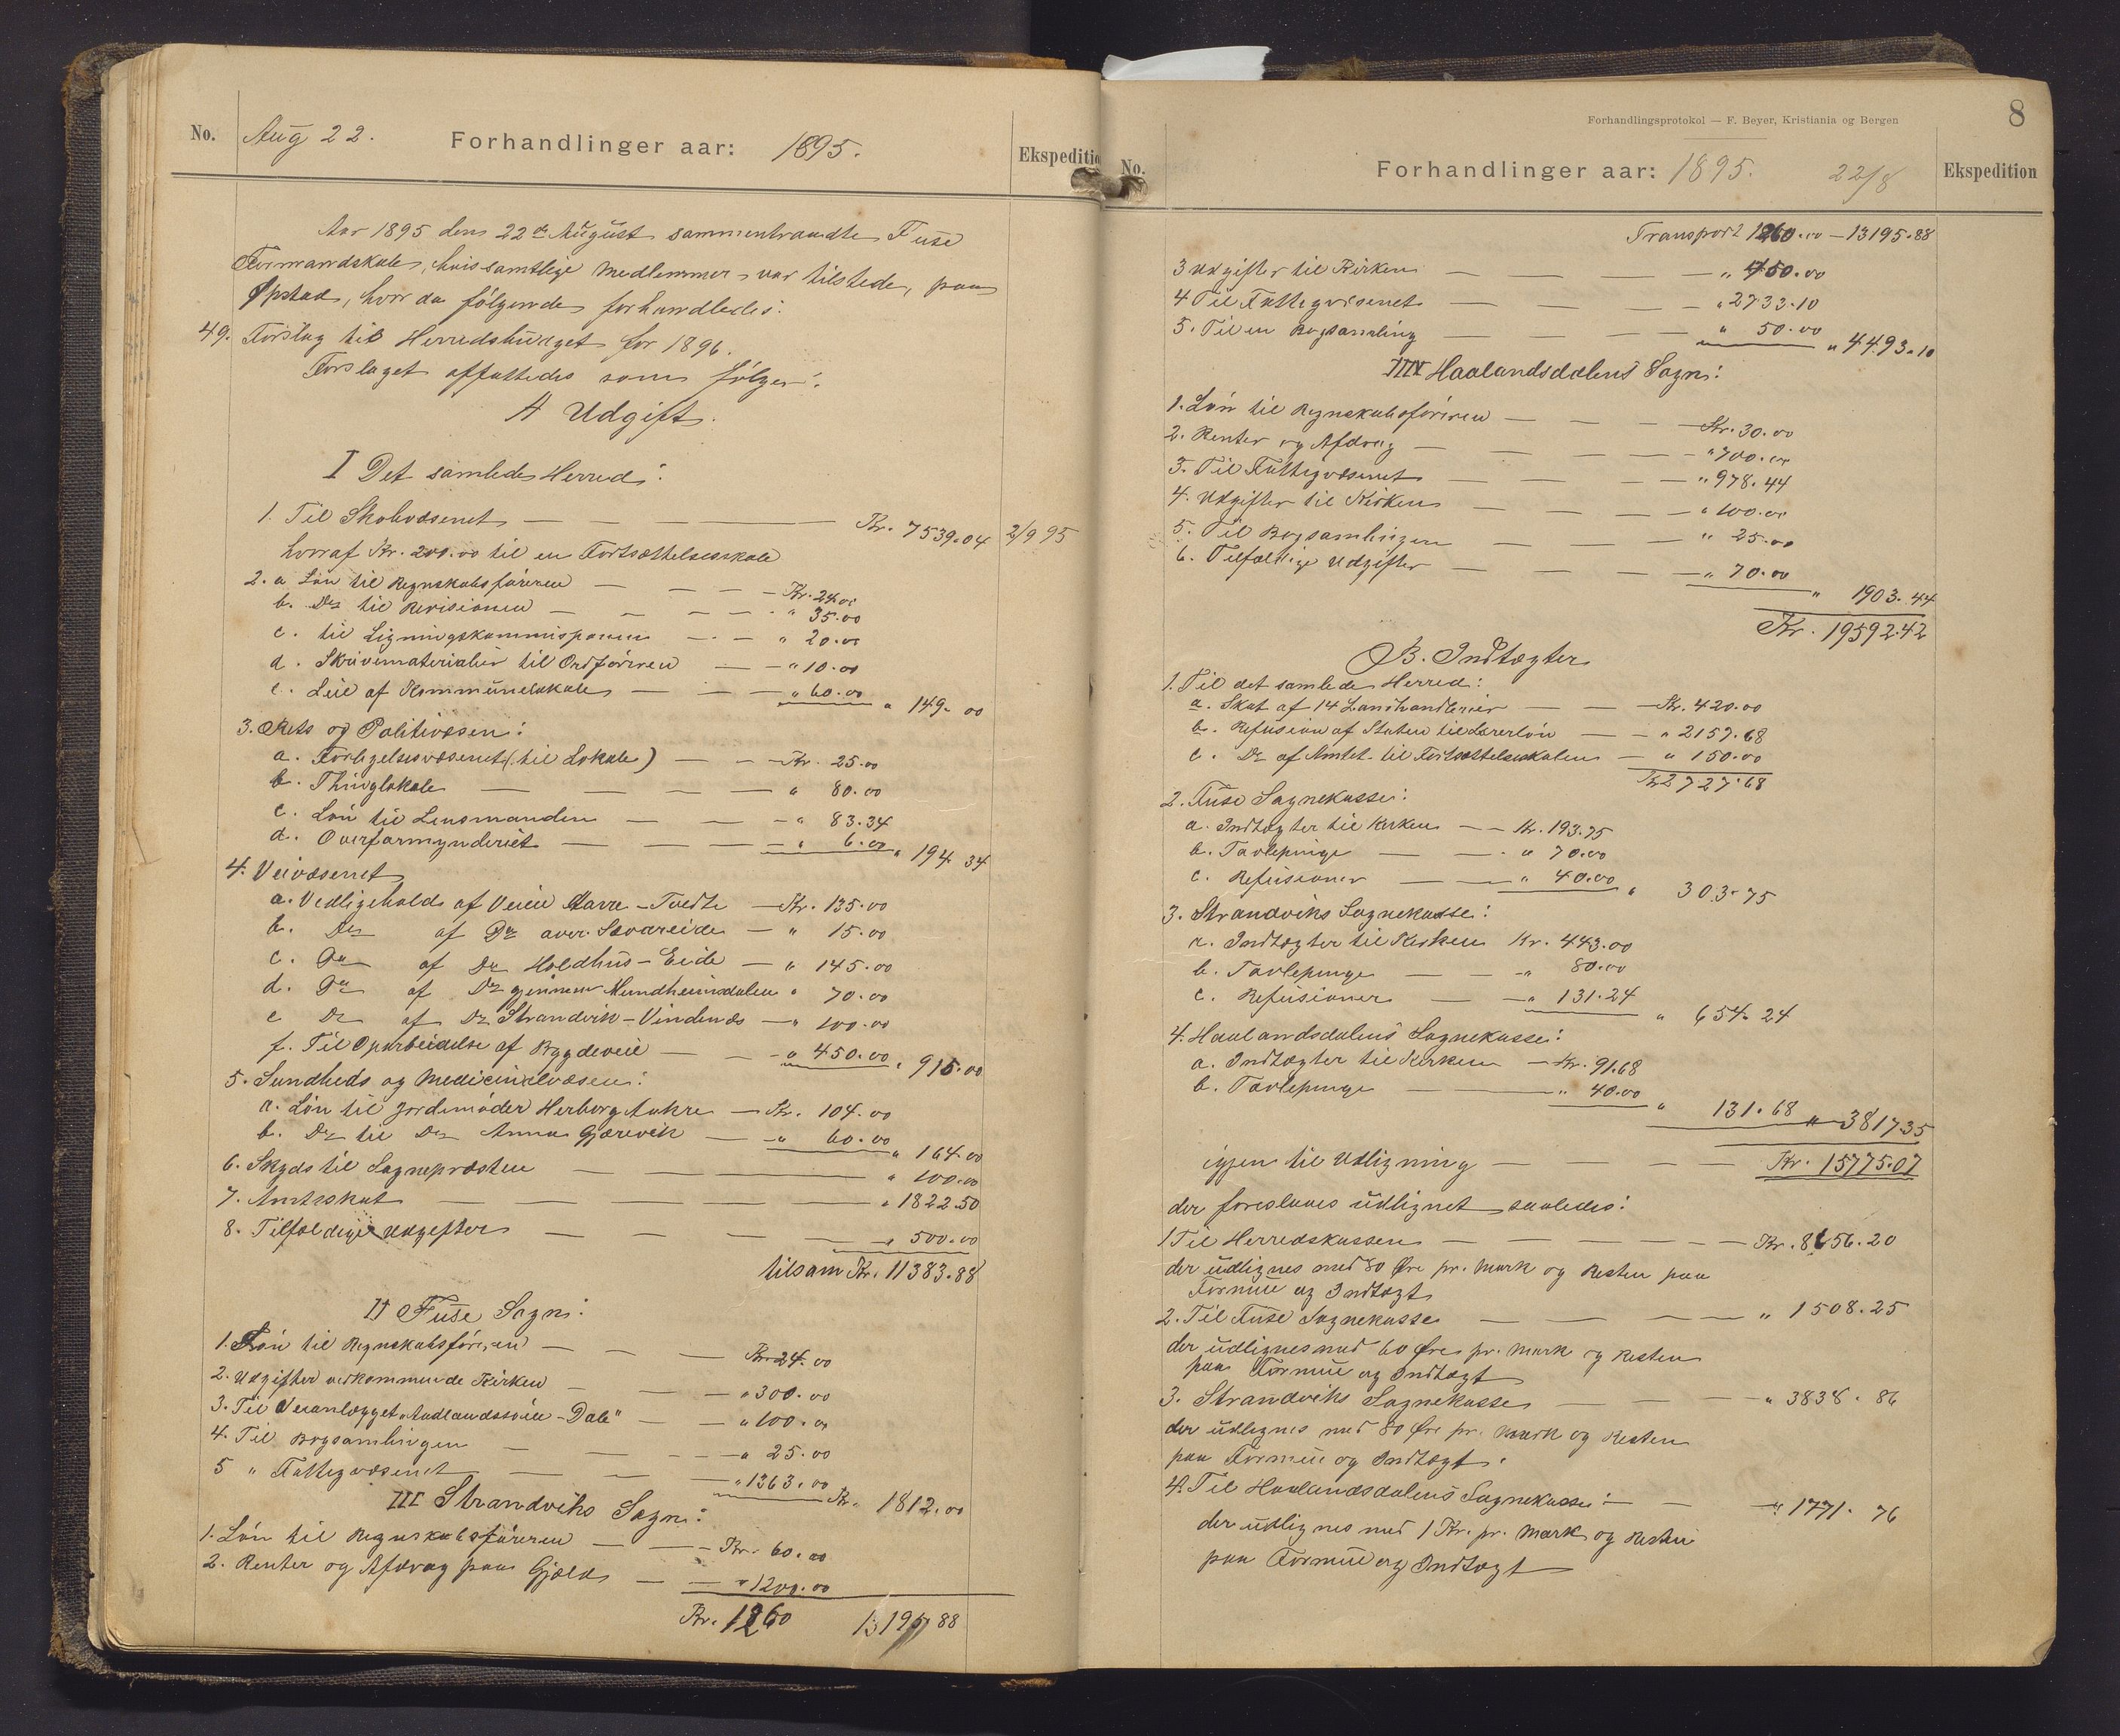 No. Aug 22. Forhandlinger aar: 1895. Ekspedition
Aar 1895 den 22de August sammentraadte Fuse
Formandskab, hvis samtlige Medlemmer var tilstede, paa
Opstad, hvor da følgende forhandledes:
49. Forslag til Herredsbudget for 1896.
Forslaget affattedes som følger:
A Udgift.
I Det samlede Herred:
1. Til Skolevæsenet — — — Kr. 7539.04 2/9 95
hvoraf Kr. 200.00 til en Fortsættelsesskole
2. a Løn til Regnskabsføreren — — — Kr. 24.00
b. Do til Revisionen — — — " 35.00
c. til Ligningskommissionen — — " 20.00
d. Skrivematerialier til Ordføreren — — " 10.00
e. Leie af Kommunelokale — — — " 60.00 " 149.00
3. Rets og Politivæsen:
a. Forligelsesvæsenet (til Lokale) — — Kr. 25.00
b. Thinglokale — — — — " 80.00
c. Løn til Lensmanden — — — " 83.34
d. Overformynderiet — — — " 6.00 " 194.34
4. Veivæsenet
a. Vedligehold af Veien Havre - Tvedte — Kr. 135.00
b. Do af Do over Sævareide — " 15.00
c. Do af Do Holdhus - Eide — " 145.00
d. Do af Do gjennem Mundheimsdalen " 70.00
e Do af Do Strandvik - Vindenæs — " 100.00
f. Til Oparbeidelse af Bygdeveie — — " 450.00 " 915.00
5. Sundheds og Medicinalvæsen:
a. Løn til Jordemoder Herborg Aakre — Kr. 104.00
b. Do til Do Anna Gjærevik — " 60.00 " 164.00
6. Skyds til Sognepræsten — — " 100.00
7. Amtsskat — — — " 1822.50
8. Tilfældige Udgifter — — — " 500.00
tilsam Kr. 11383.88
II Fuse Sogn:
1. Løn til Regnskabsføreren — — — Kr. 24.00
2. Udgifter vedkommende Kirken — — — " 300.00
3. Til Veianlægget „ - Dale" — — " 100.00
4. Til Bogsamlingen — — — " 25.00
5 " Fattigvæsenet — — — " 1363.00 Kr. 1812.00
III Strandviks Sogn:
1. Løn til Regnskabsføreren — — Kr. 60.00
2. Renter og Afdrag paa Gjæld — — " 1200.00
Kr. 1260 13195.88
8
Forhandlingsprotokol — F. Beyer, Kristiania og Bergen
No. Forhandlinger aar: 1895. 22/8 Ekspedition
Transport 1260.00 — 13195.88
3 Udgifter til Kirken — — — — " 450.00
4 Til Fattigvæsenet — — — " 2733.10
5. Til en Bogsamling — — — " 50.00 " 4493.10
IV Haalandsdalens Sogn:
1. Løn til Regnskabsføreren — — — Kr. 30.00
2. Renter og Afdrag — — — " 700.00
3. Til Fattigvæsenet — — — " 978.44
4. Udgifter til Kirken — — — " 100.00
5. Til Bogsamlingen — — — " 25.00
6. Tilfældige Udgifter — — — " 70.00 " 1903.44
Kr. 19592.42
B. Indtægter
1. Til det samlede Herred:
a. Skat af 14 Landhandlerier — — Kr. 420.00
b. Refusion af Staten til Lærerløn — " 2157.68
c. Do af Amtet til Fortsættelsesskolen — " 150.00
Kr 2727.68
2. Fuse Sognekasse:
a. Indtægter til Kirken — — Kr. 193.75
b. Tavlepenge — — " 70.00
c. Refusioner — — " 40.00 " 303.75
3. Strandviks Sognekasse:
a. Indtægter til Kirken Kr. 443.00
b. Tavlepenge — — " 80.00
c. Refusioner — — " 131.24 " 654.24
4. Haalandsdalens Sognekasse:
a. Indtægter til Kirken — Kr. 91.68
b. Tavlepenge — " 40.00 " 131.68 " 3817.35
igjen til Udligning — — — — Kr. 15775.07
der foreslaaes udlignet saaledes:
1 Til Herredskassen — — — — Kr. 8656.20
der udlignes med 80 Øre pr. Mark og Resten paa
Formue og Indtægt
2. Til Fuse Sognekasse — — — " 1508.25
der udlignes med 60 Øre pr. Mark og Resten
paa Formue og Indtægt
3. Strandviks Sognekasse — — — " 3838.86
der udlignes med 80 Øre pr. Mark og Resten
paa Formue og Indtægt.
4. Til Haalandsdalens Sognekasse: — — " 1771.76
der udlignes med 1 Kr. pr. Mark og Resten
paa Formue og Indtægt —